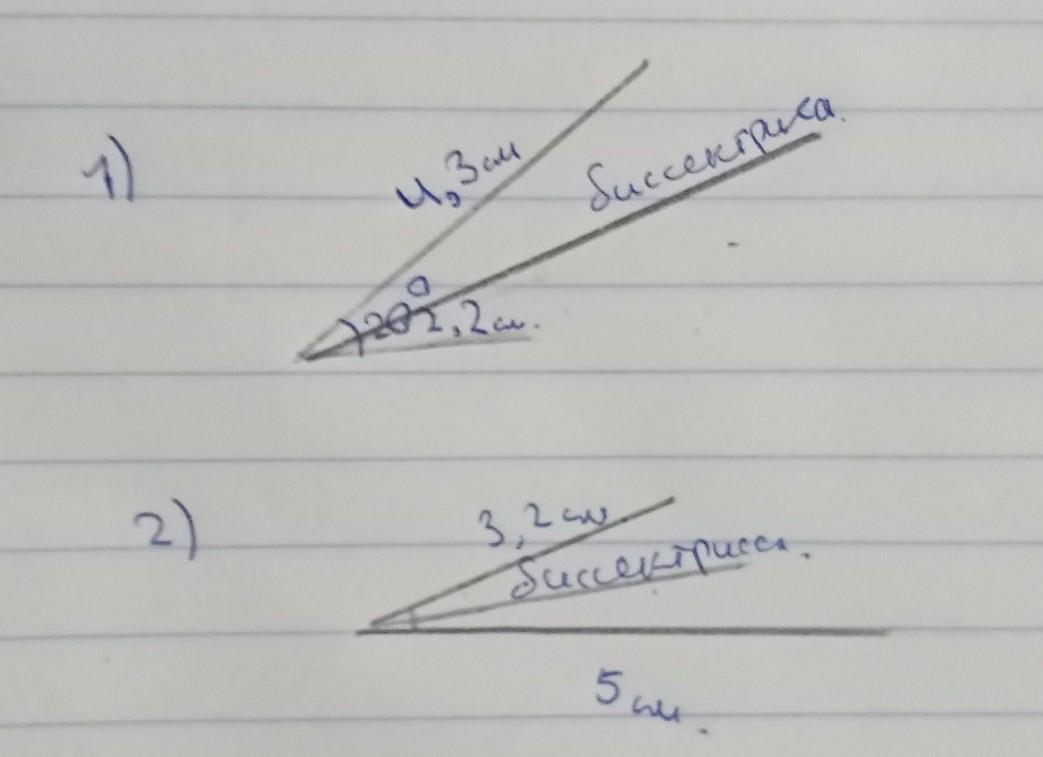 1)
4,3 см
биссектриса.
20°
2,2 см.
2)
3,2 см
биссектрисса.
5 см.